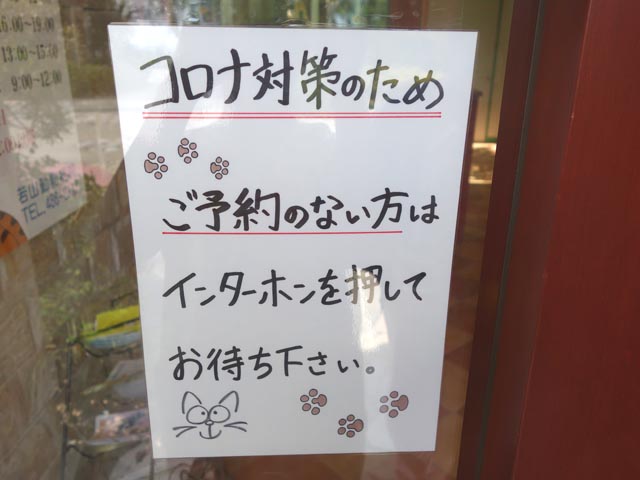 コロナ対策のため
ご予約のない方は
インターホンを押して
お待ち下さい。
16:00~19:00
13:00~15:00
9:00~12:00
若山動物
TEL.